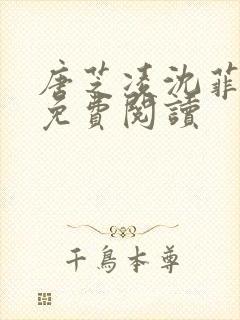 唐芝凌沈菲
免費閱讀
千鳥本尊